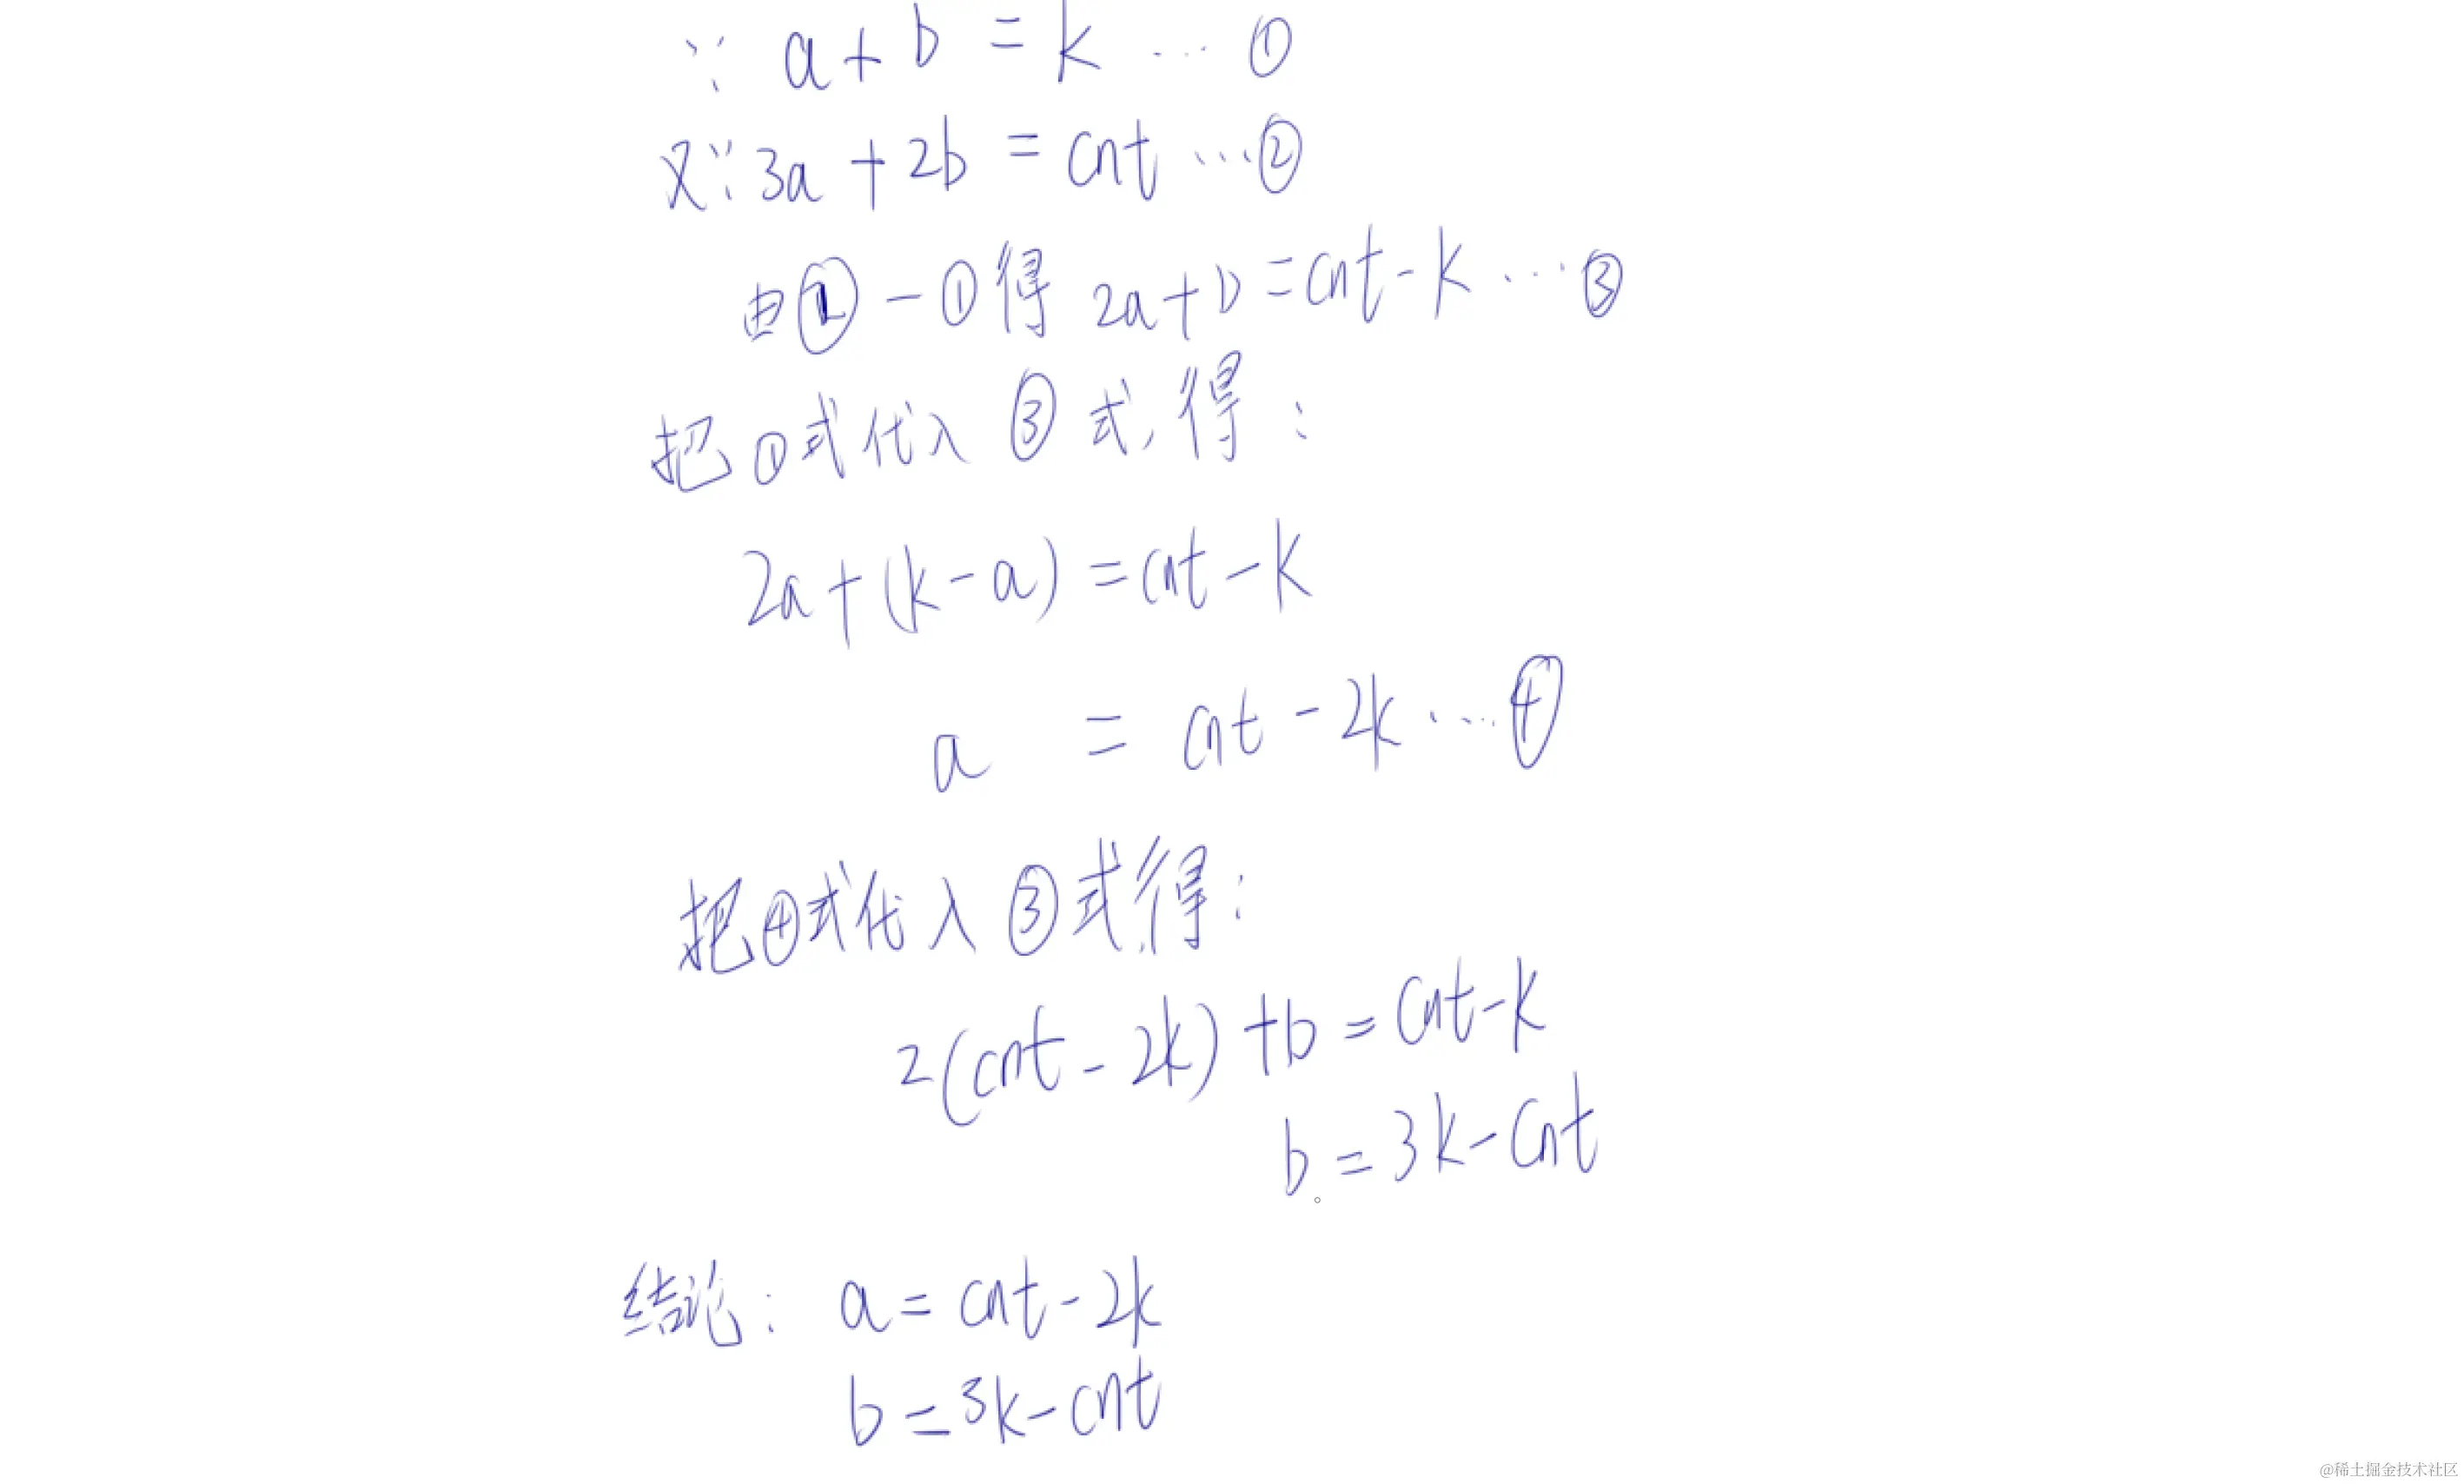 ∵ a + b = k … ①
又∵ 3a + 2b = cnt … ②
由② - ①得 2a + b = cnt - k … ③
把①式代入③式,得:
2a + (k - a) = cnt - k
a = cnt - 2k … ④
把④式代入③式,得:
2(cnt - 2k) + b = cnt - k
b = 3k - cnt
结论: a = cnt - 2k
b = 3k - cnt
@稀土掘金技术社区